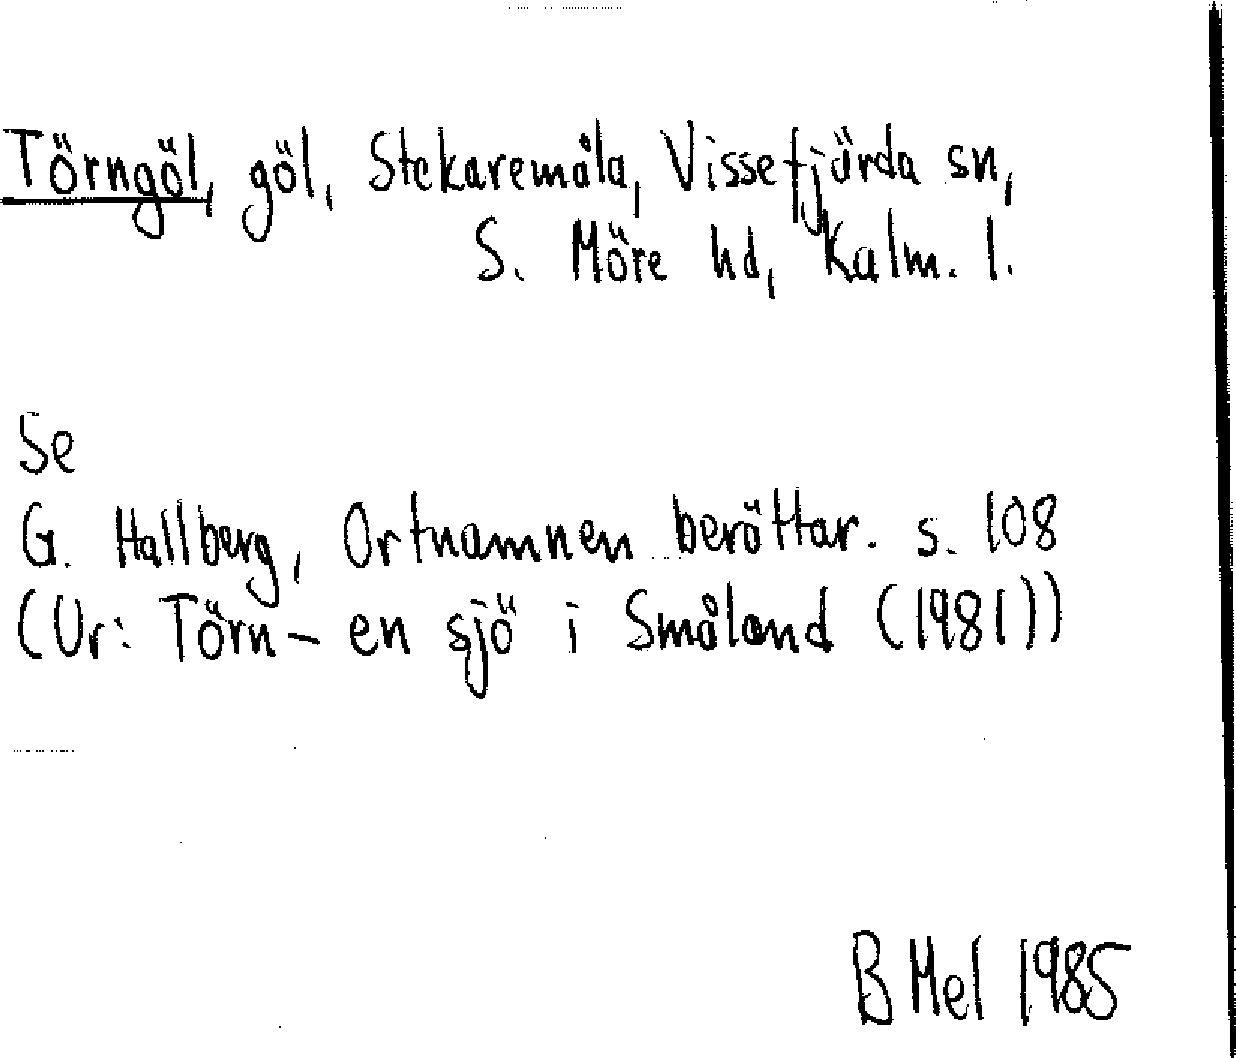 Törngöl, göl, Stekaremåla, Vissefjärda sn,
S. Möre hd, Kalm. l.
Se
G. Hallberg, Ortnamnen berättar. s. 108
(Ur: Törn – en sjö i Småland (1981))
B Mel 1985